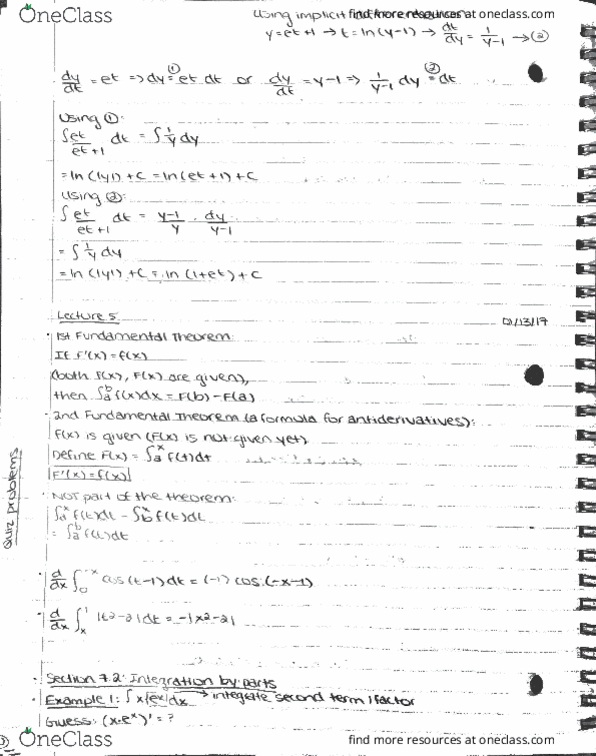 OneClass
find more resources at oneclass.com
Using implicit
y=e^t+1 → t=ln(y-1) → dt/dy = 1/(y-1) → ②
dy/dt = e^t => dy ①= e^t dt or dy/dt = y-1 => 1/(y-1) dy ②= dt
Using ①:
∫ e^t/(e^t+1) dt = ∫ 1/y dy
= ln(|y|)+C = ln(e^t+1)+C
Using ②:
∫ e^t/(e^t+1) dt = (y-1)/y · dy/(y-1)
= ∫ 1/y dy
= ln(|y|)+C = ln(1+e^t)+C
Lecture 5 01/13/17
· 1st Fundamental Theorem:
If F'(x)=f(x)
(both f(x), F(x) are given),
then ∫_a^b f(x)dx = F(b)-F(a)
· 2nd Fundamental Theorem (a formula for antiderivatives):
f(x) is given (F(x) is not given yet)
Define F(x) = ∫_a^x f(t)dt
F'(x)=f(x)
Quiz problems
· NOT part of the theorem:
∫_a^x f(t)dt - ∫_b^x f(t)dt
= ∫_a^b f(t)dt
· d/dx ∫_0^-x cos(t-1)dt = (-1) cos(-x-1)
· d/dx ∫_x^1 |t2-2|dt = -|x2-2|
· Section 7.2: Integration by parts
· Example 1: ∫ x(e^x)dx → integrate second term/factor
Guess: (x·e^x)' = ?
OneClass
find more resources at oneclass.com